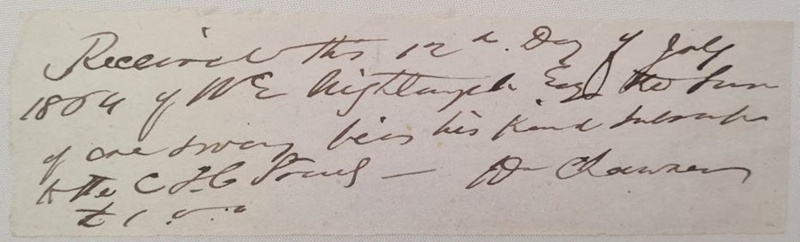 Received this 12th. Day of July
1864 of W E Nightingale Esq the Sum
of one being his kind
to the C
£1.0.0